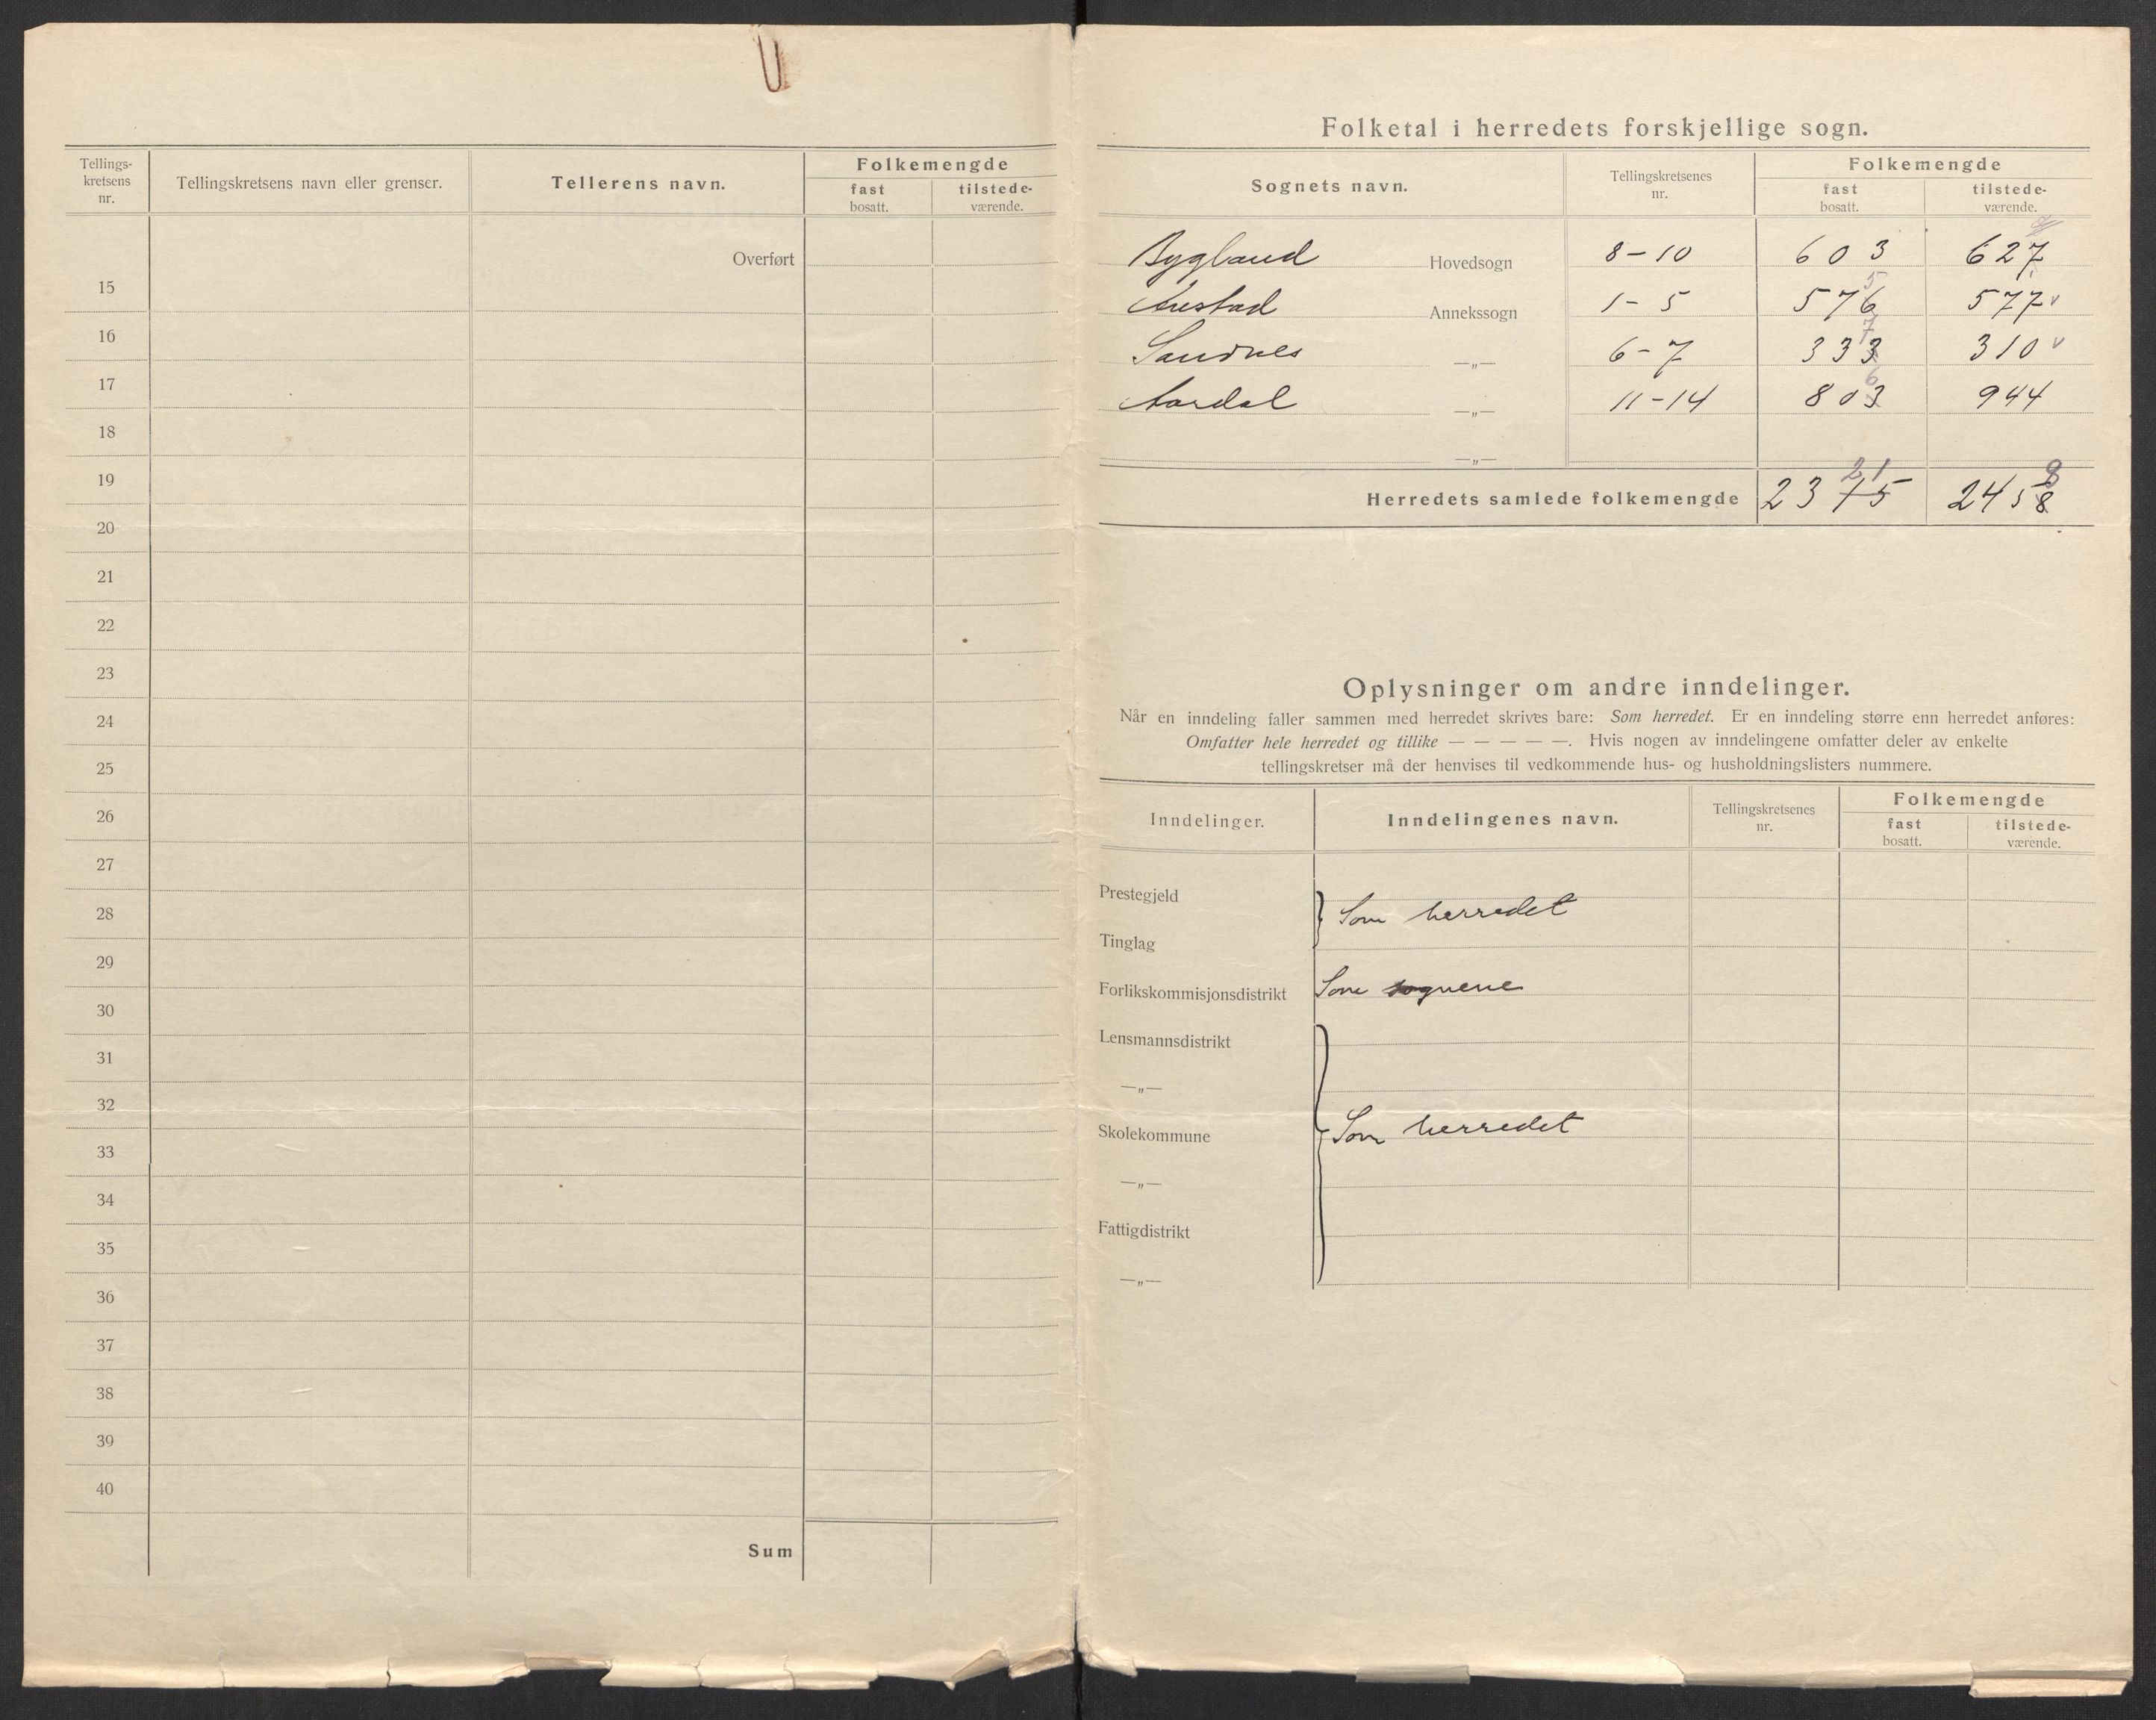 Tellings-kretsens nr. Tellingskretsens navn eller grenser. Tellerens navn. Folkemengde
fast bosatt. tilstede-værende.
Overført
15
16
17
18
19
20
21
22
23
24
25
26
27
28
29
30
31
32
33
34
35
36
37
38
39
40
Sum
Folketal i herredets forskjellige sogn.
Sognets navn. Tellingskretsenes nr. Folkemengde
fast bosatt. tilstede-værende.
Bygland Hovedsogn 8-10 603 627
Austad Annekssogn 1-5 576 5 577 v
Sandnes —„— 6-7 333 7 310 v
Aardal —„— 11-14 803 6 944
—„—
Herredets samlede folkemengde 2375 21 2458 8
Oplysninger om andre inndelinger.
Når en inndeling faller sammen med herredet skrives bare: Som herredet. Er en inndeling større enn herredet anføres:
Omfatter hele herredet og tillike — — — — —. Hvis nogen av inndelingene omfatter deler av enkelte
tellingskretser må der henvises til vedkommende hus- og husholdningslisters nummere.
Inndelinger. Inndelingenes navn. Tellingskretsenes nr. Folkemengde
fast bosatt. tilstede-værende.
Prestegjeld
Som herredet
Tinglag
Forlikskommisjonsdistrikt Som sognene
Lensmannsdistrikt
—„—
Skolekommune Som herredet
—„—
Fattigdistrikt
—„—